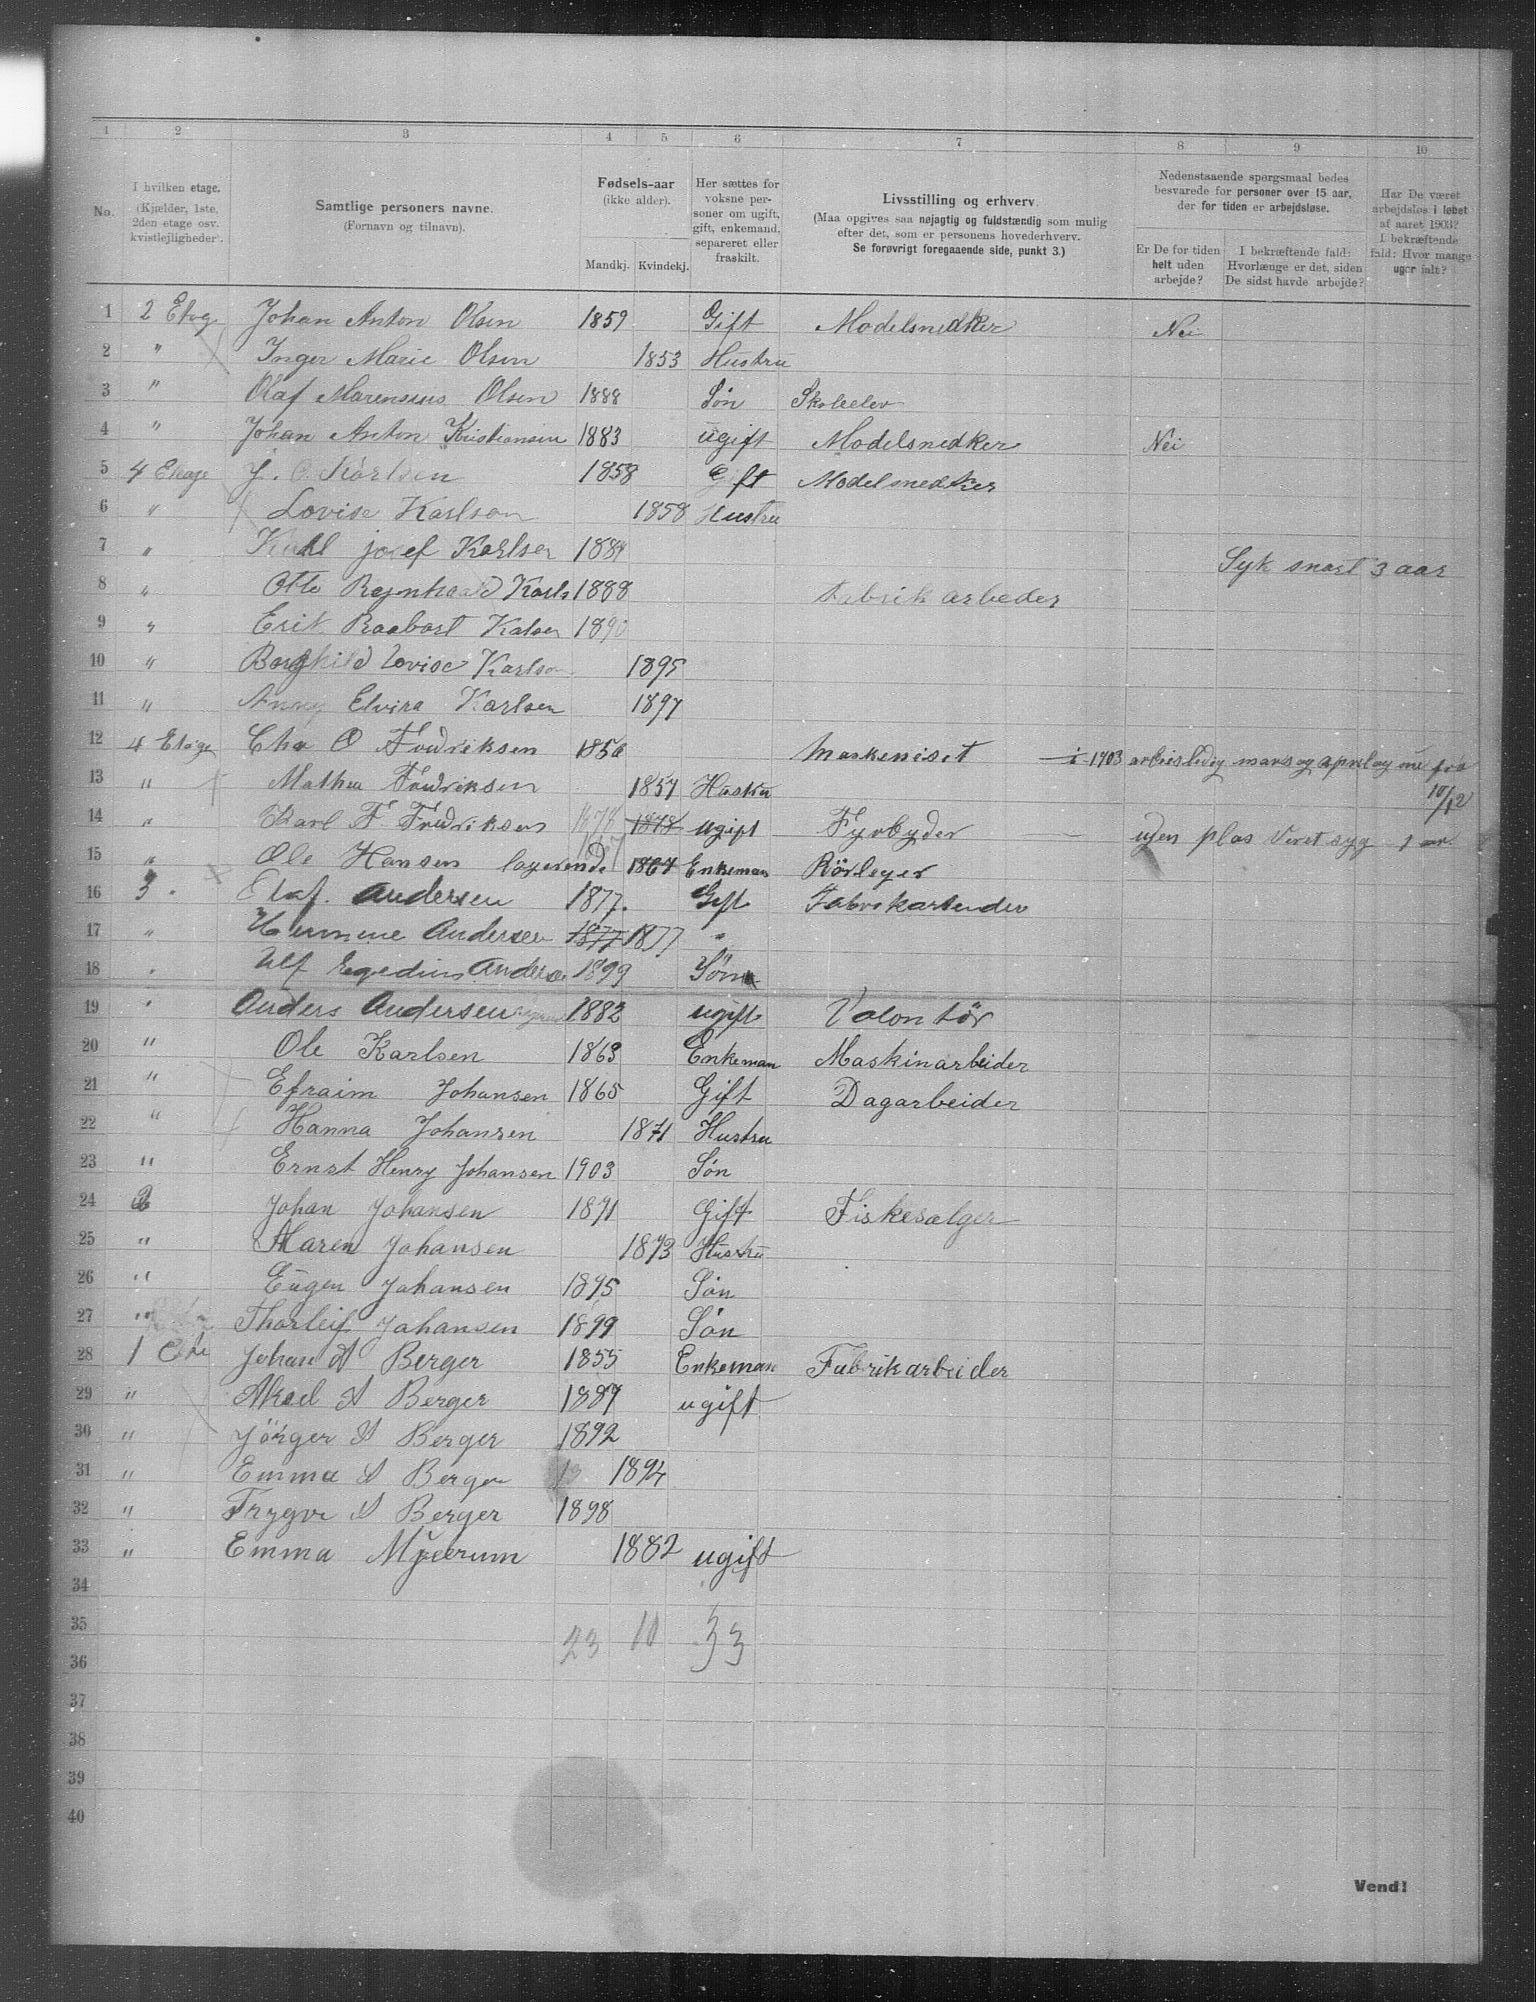 1 2 3 4 5 6 7 8 9 10
No.
I hvilken etage. (Kjælder, 1ste, 2den etage osv. kvistlejligheder).
Samtlige personers navne. (Fornavn og tilnavn).
Fødsels-aar (ikke alder).
Mandkj. Kvindekj.
Her sættes for voksne personer om ugift, gift, enkemand, separeret eller fraskilt.
Livsstilling og erhverv.
(Maa opgives saa nøjagtig og fuldstændig som mulig efter det, som er personens hovederhverv. Se forøvrigt foregaaende side, punkt 3.)
Nedenstaaende spørgsmaal bedes besvarede for personer over 15 aar, der for tiden er arbejdsløse.
Er De for tiden helt uden arbejde?
I bekræftende fald: Hvorlænge er det, siden De sidst havde arbejde?
Har De været arbejdsløs i løbet af aaret 1903? I bekræftende fald: Hvor mange uger ialt?
1 2 Etag Johan Anton Olsen 1859 Gift Modelsnedker Nei
2 " Inger Marie Olsen 1853 Hustru
3 " Olaf Marensius Olsen 1888 Søn Skoleelev
4 " Johan Anton Kristiansen 1883 ugift Modelsnedker Nei
5 4 Etage J. O. Karlsen 1858 Gift Modelsnedker
6 " Lovise Karlson 1858 Hustru
7 " Karl josef Karlsen 1884 Syk snart 3 aar
8 " Otto Regnhard Karls 1888 Fabrik arbeder
9 " Erik Kalsen 1890
10 " Borghild Lovise Karlson 1895
11 " Anny Elvira Karlsen 1897
12 4 Etage Chr O Fredriksen 1856 Maskenist i 1903 arbeisledig mars og april og nu fra
13 " Mathea Fredriksen 1857 Hustru 10/12
14 " Karl F. Fredriksen 1878 1878 ugift Fyrbyder uden plas Veret syg 1 ar.
15 " Ole Hansen logerende 1867 Enkeman Rörleger
16 3 " Olaf. Andersen 1877. Gift Fabrikarbeider
17 " Hermine Andersen 1877 1877 "
18 " Ulf Egedius Andersen 1899 Søn
19 " Anders Andersen 1882 ugift Volontör
20 " Ole Karlsen 1863 Enkeman Maskinarbeider
21 " Efraim Johansen 1865 Gift Dagarbeider
22 " Hanna Johansen 1871 Hustru
23 " Ernst Henry Johansen 1903 Søn
24 2 Johan Johansen 1871 Gift Fiskesælger
25 " Maren Johansen 1873 Hustru
26 " Eugen Johansen 1895 Søn
27 " Thorleif Johansen 1899 Søn
28 1 Johan A Berger 1855 Enkeman Fabrikarbeider
29 " Aksel A Berger 1887 ugift
30 " Jörger A Berger 1892
31 " Emma A Berger 1894
32 " Trygve A Berger 1898
33 " Emma 1882 ugift
34
35 23 10 33
36
37
38
39
40
Vend!